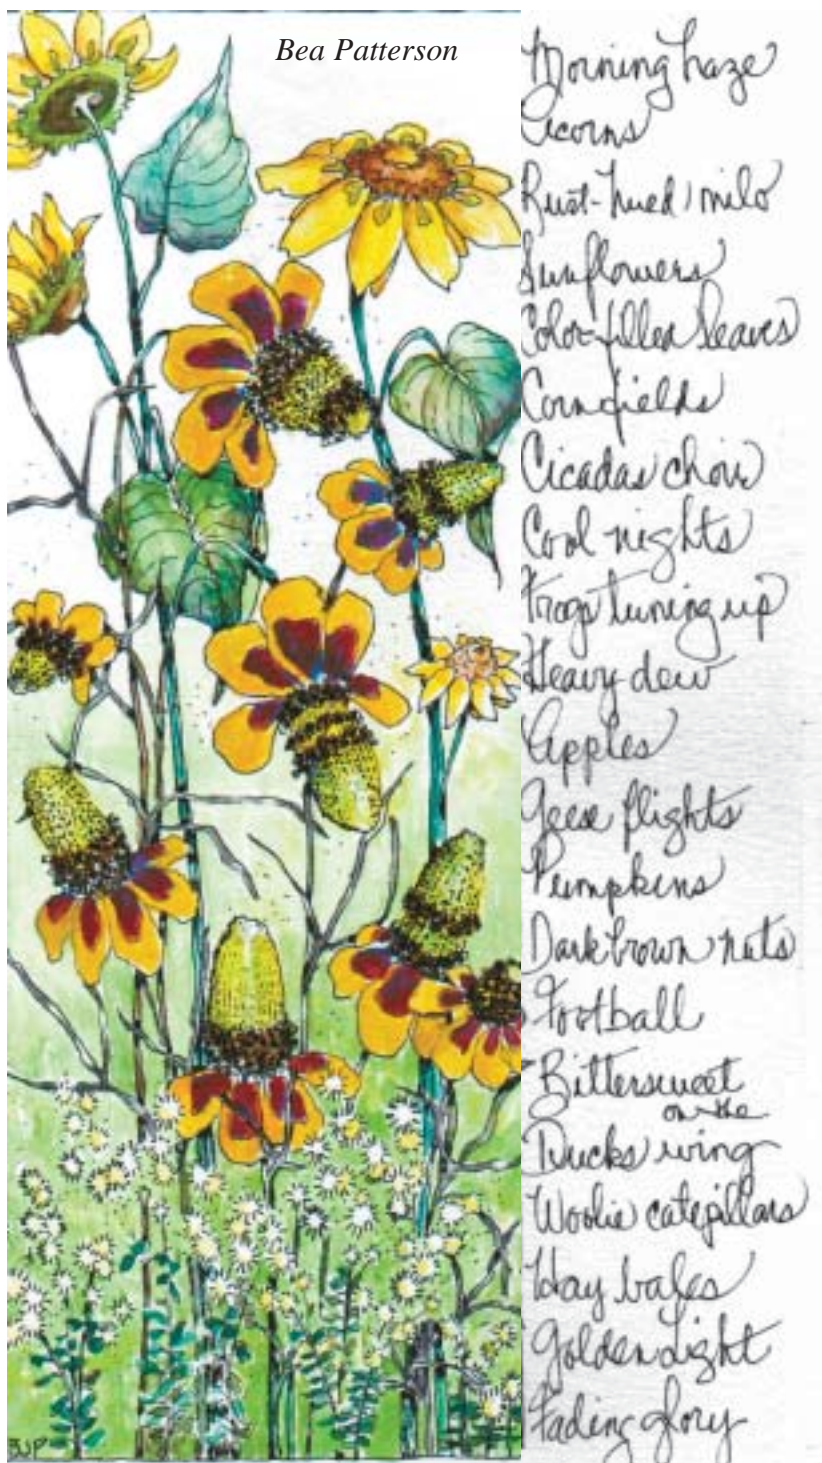 Bea Patterson
Morning haze
Acorns
Rust-hued milo
Sunflowers
Color-filled leaves
Cornfields
Cicadas choir
Cool nights
Frogs tuning up
Heavy dew
Apples
Geese flights
Pumpkins
Dark brown nuts
Football
Bittersweet
Ducks on the wing
Woolie catepillars
Hay bales
Golden Light
Fading glory
BJP